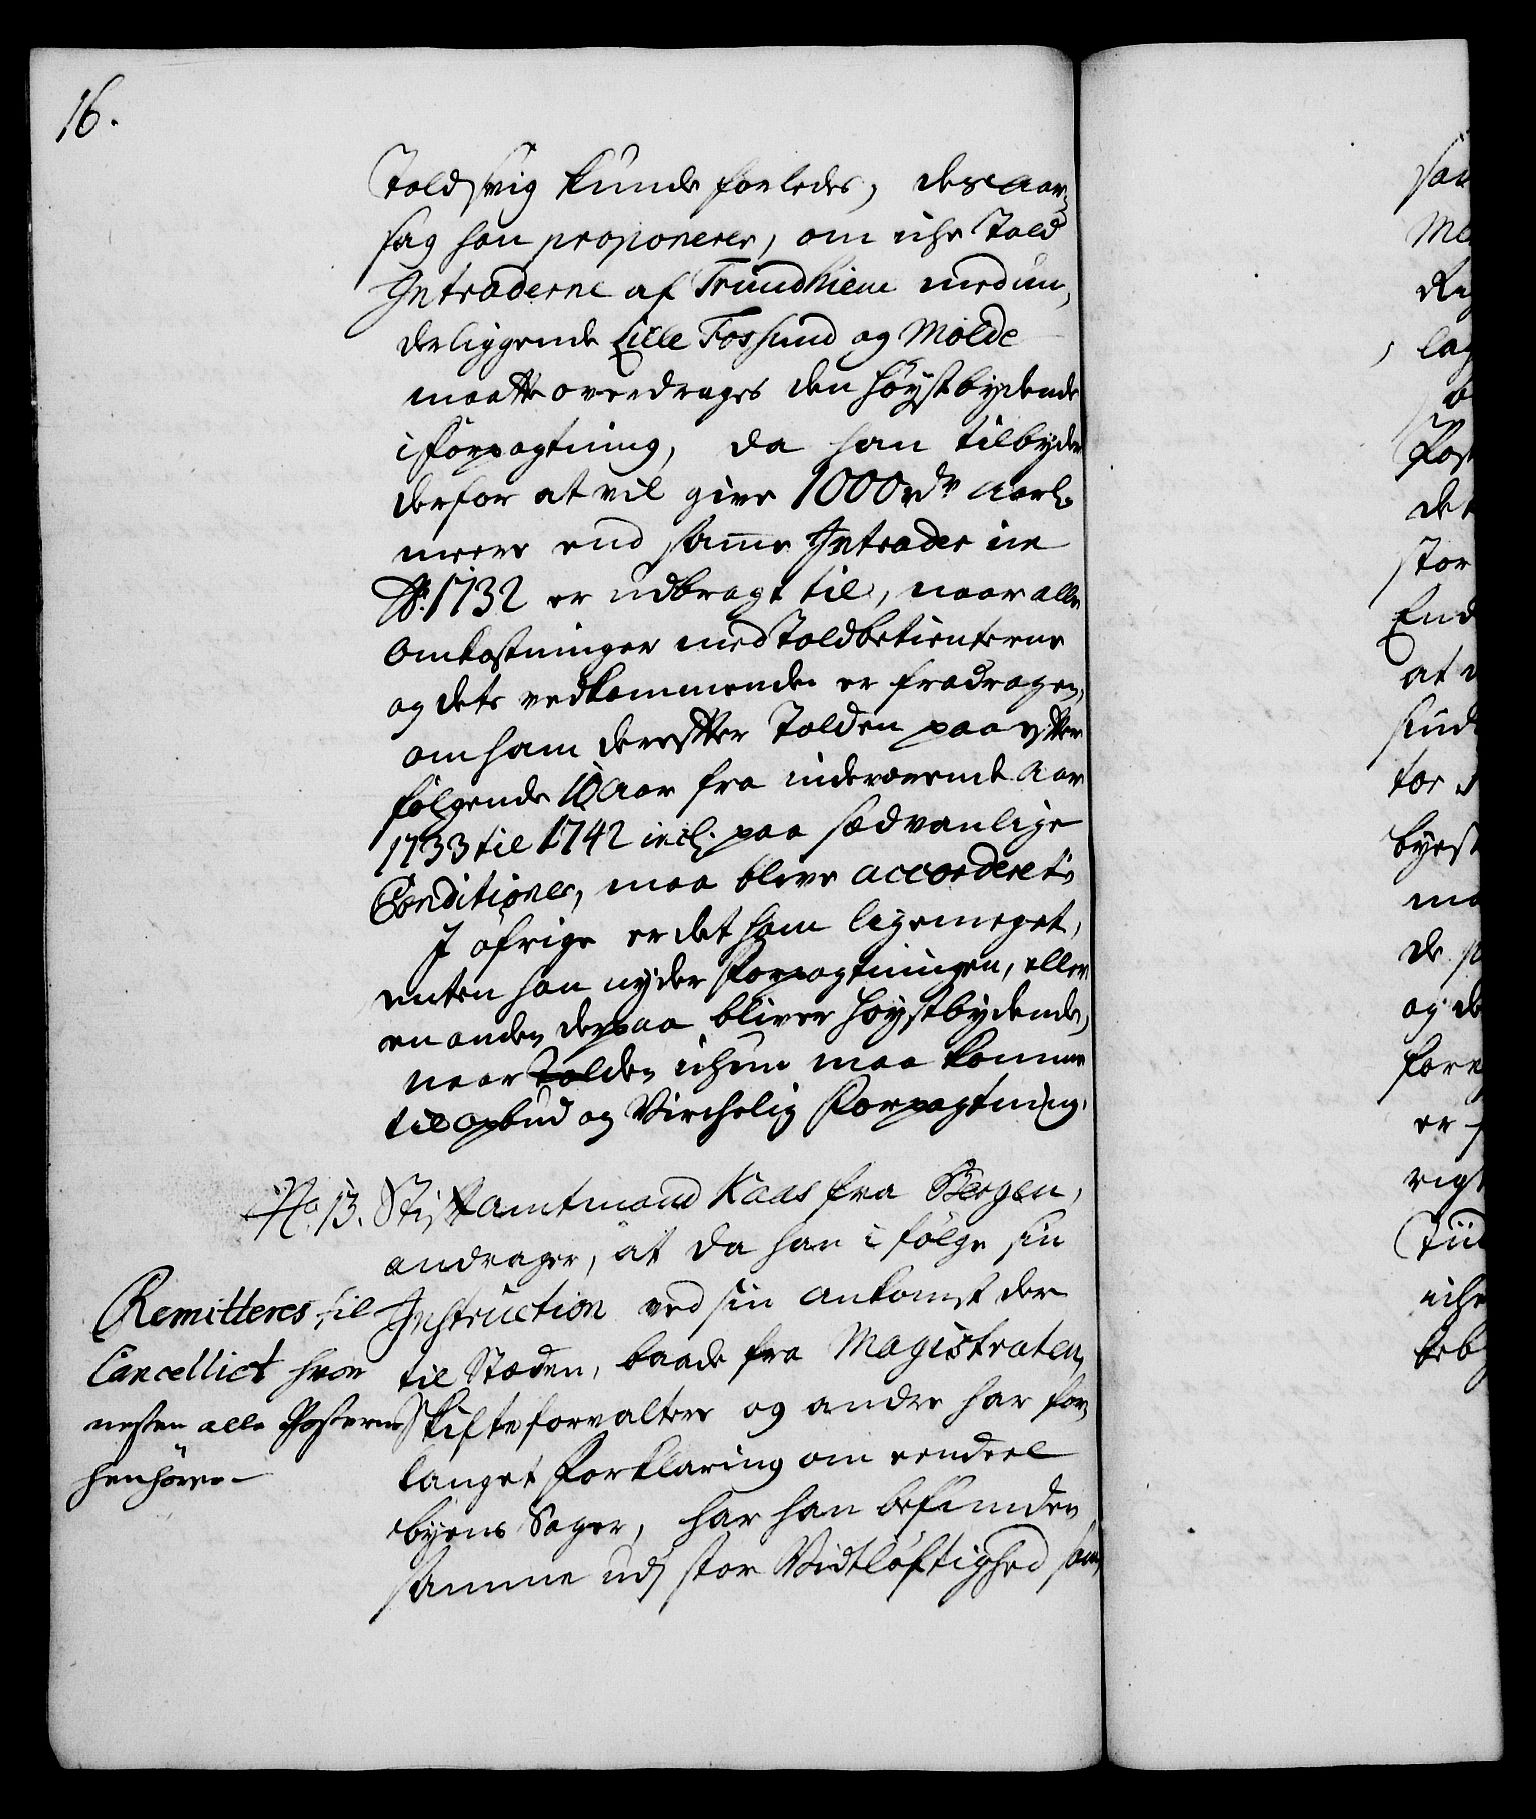 16.
Toldsvig kunde forledes, des aar,
sag han proponerer, om iche Told
Intraderne af Trundhiem med un,
derliggende Lille Fossund og Molde
maatte overdrages den høystbydende
i forpagtning, da han tilbyder
derfor at vil give 1000 rdr aarl.
meere end samme Intrader in
Ao. 1732 er udbragt til, naar alle
omkostninger med Toldbetienterne
og dets vedkommende er fradragen,
om ham derefter Tolden paa efter
følgende 10 Aar fra inderværende Aar
1733 til 1742 incl. paa sædvanlige
Conditioner, maa blive accorderet.
I øfrige er det ham ligemeget,
enten han nyder Forpagtningen, eller
en anden derpaa bliver høystbydende,
naar Tolden ichun maa komme
til opbud og Virchelig Forpagtning.
No. 13. Stiftamtmand Kaas fra Bergen,
andrager, at da han i følge sin
Instruction ved sin ankomst der
til Stæden, baade fra Magistraten,
Skifteforvaltere og andre har for,
langet Forklaring om eendeel
byens Sager, har han befunden
samme udj stor Vidtløftighed som,
Remitteres til
Cancelliet hvor
nesten alle Posterne
henhører